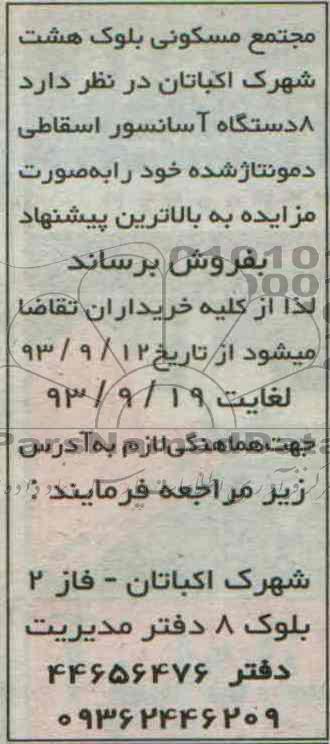 مجتمع مسکونی بلوک هشت
شهرک اکباتان در نظر دارد
۸دستگاه آسانسور اسقاطی
دمونتاژشده خود رابه‌صورت
مزایده به بالاترین پیشنهاد
بفروش برساند
لذا از کلیه خریداران تقاضا
میشود از تاریخ۹۳/۹/۱۲
لغایت ۹۳/۹/۱۹
جهت‌هماهنگی‌لازم به‌آدرس
زیر مراجعه فرمایند :
شهرک اکباتان - فاز ۲
بلوک ۸ دفتر مدیریت
دفتر ۴۴۶۵۶۴۷۶
۰۹۳۶۲۴۴۶۲۰۹